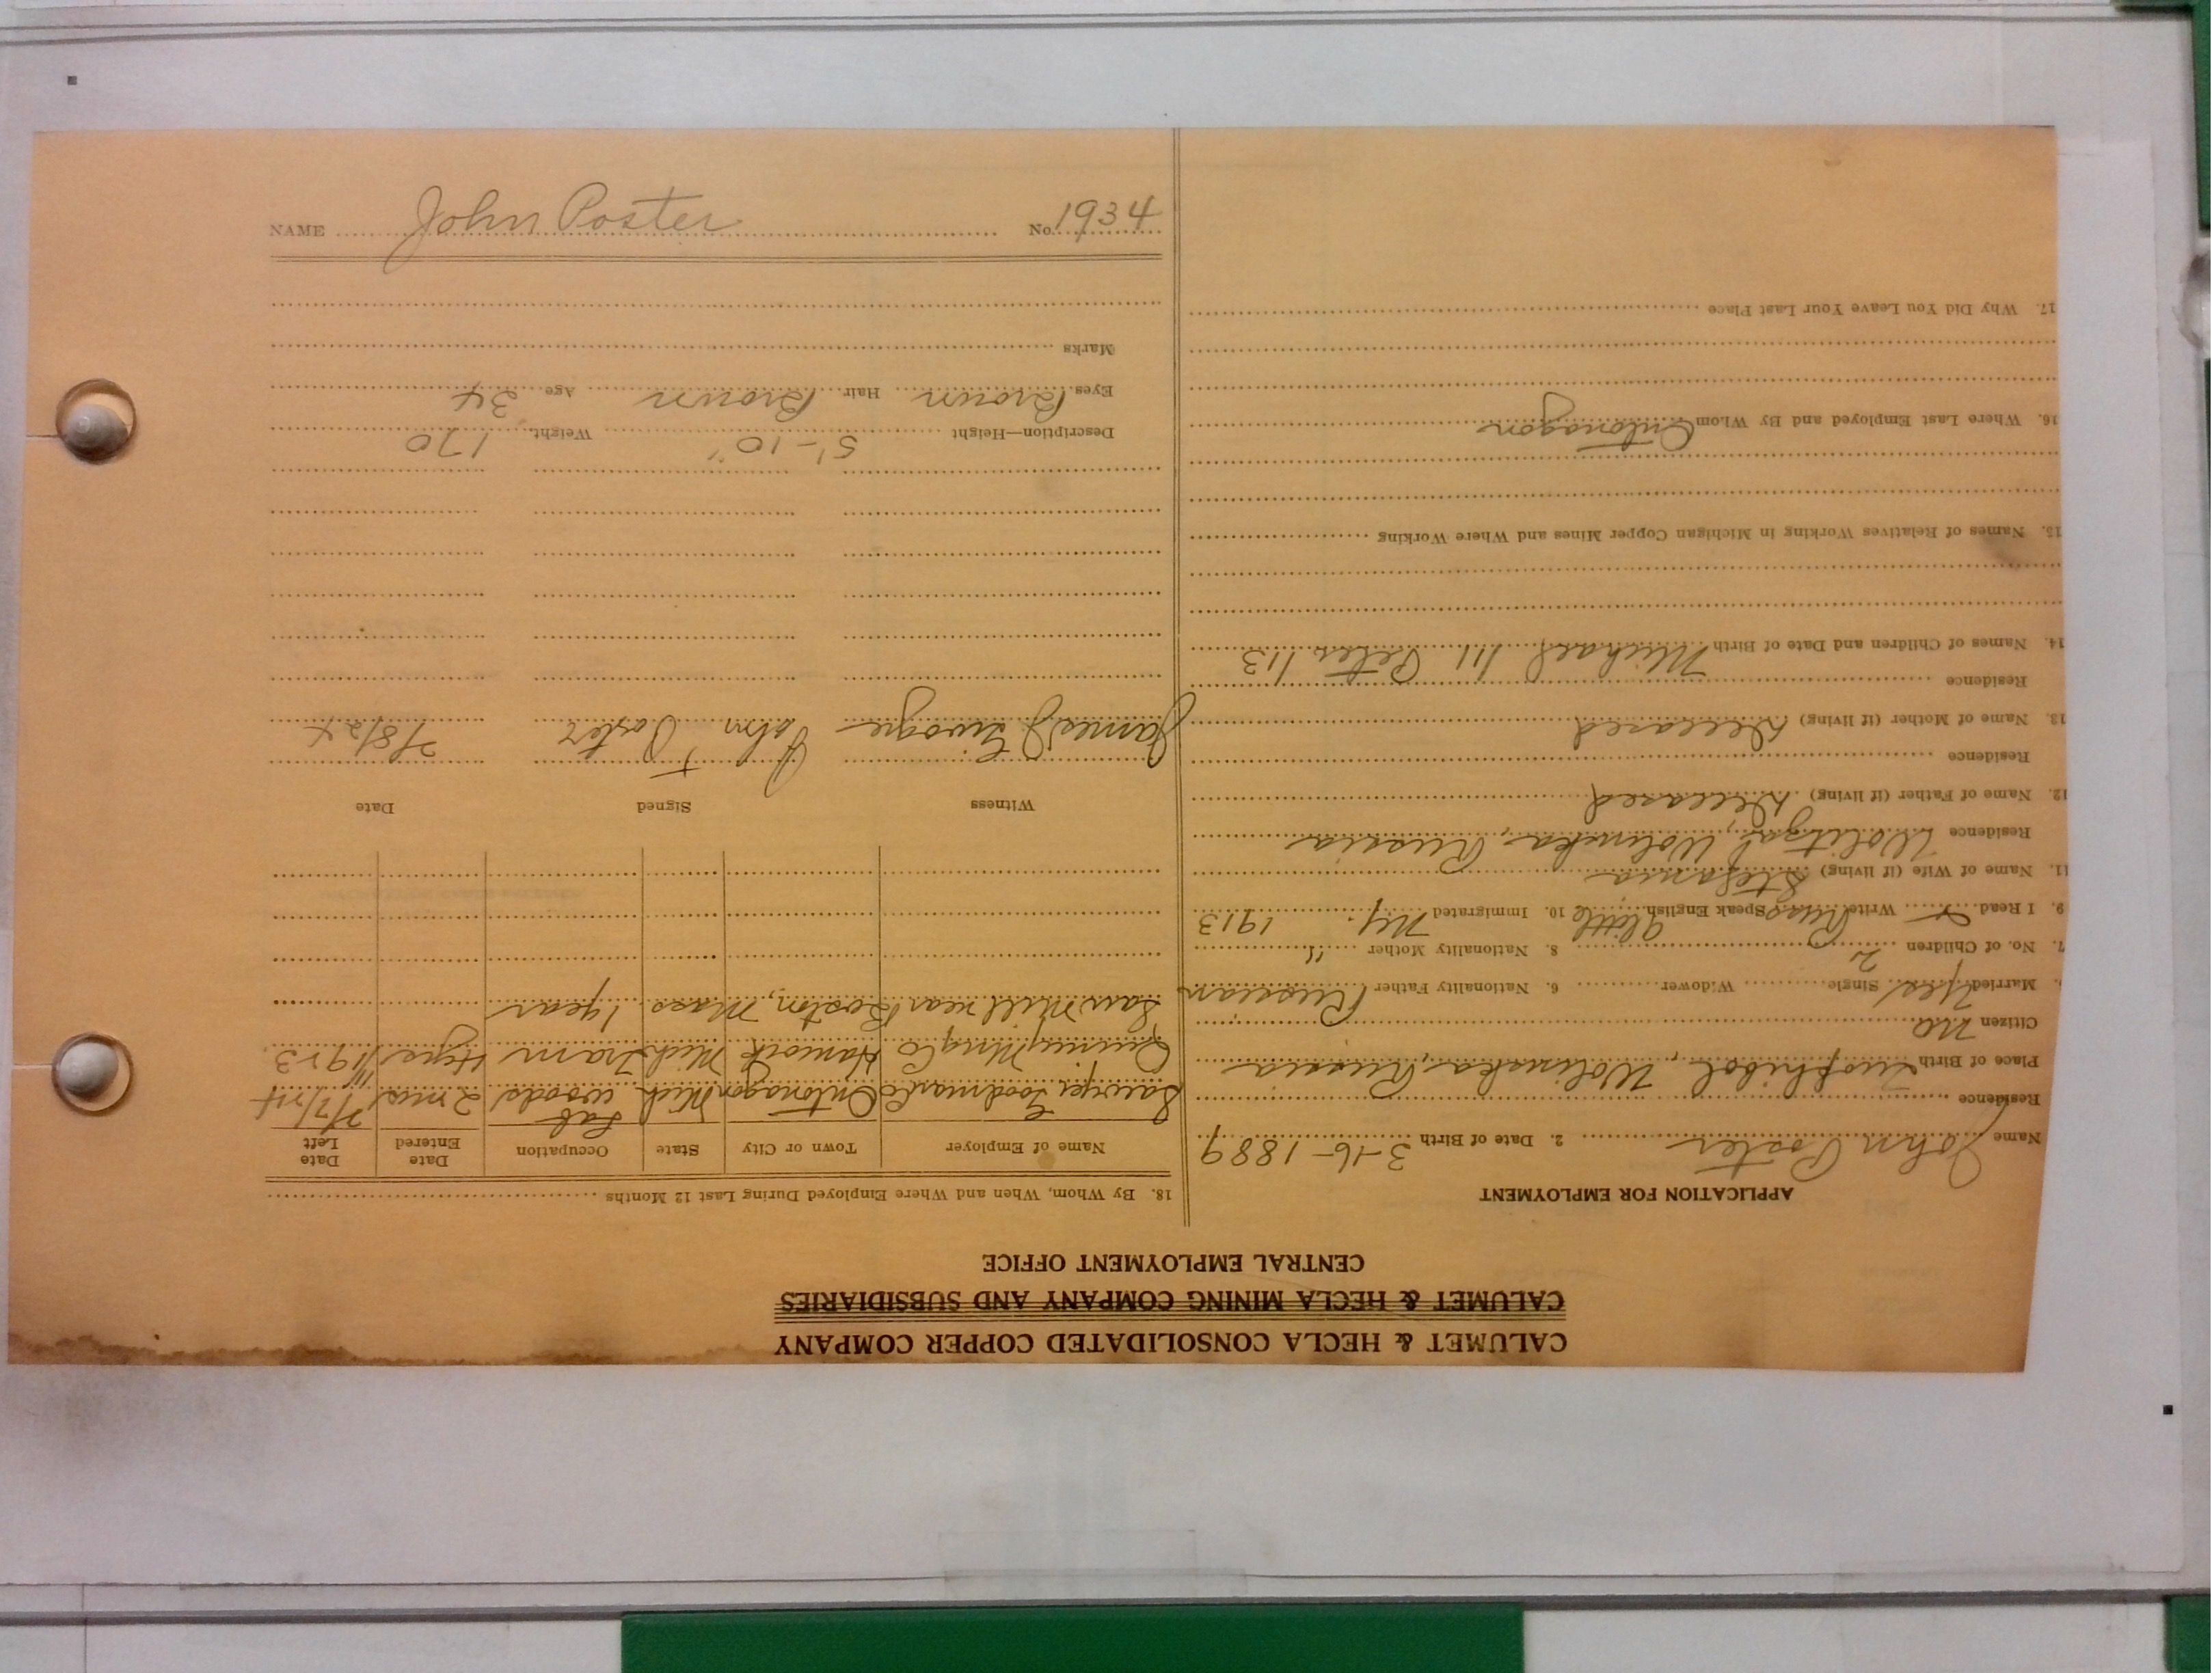 CALUMET & HECLA CONSOLIDATED COPPER COMPANY
CALUMET & HECLA MINING COMPANY AND SUBSIDIARIES
CENTRAL EMPLOYMENT OFFICE
APPLICATION FOR EMPLOYMENT
Name John Poster 2. Date of Birth 3-16-1889
Residence
Place of Birth Wolinska, Russia
Citizen No
Married Yes Single Widower 6. Nationality Father Russian
7. No. of Children 2 8. Nationality Mother "
9. I Read Write Russ Speak English little 10. Immigrated NY. 1913
11. Name of Wife (if living) Stefania
Residence Wolinska, Russia
12. Name of Father (if living) Deceased
Residence
13. Name of Mother (if living) Deceased
Residence
14. Names of Children and Date of Birth Michael 111 Peter 113
15. Names of Relatives Working in Michigan Copper Mines and Where Working
16. Where Last Employed and By Whom Ontonagon
17. Why Did You Leave Your Last Place
18. By Whom, When and Where Employed During Last 12 Months
Name of Employer Town or City State Occupation Date Entered Date Left
Sawyer Goodman Co Ontonagon Mich Lab woods 2 mos 2/7/24
Quincy Mng Co Hancock Mich Tram 4 yrs 1923
Saw Mill near Boston, Mass. 1 year
Witness Signed Date
James J John + Poster 2/8/24
Description—Height 5'-10" Weight 170
Eyes Brown Hair Brown Age 34
Marks
NAME John Poster No. 1934